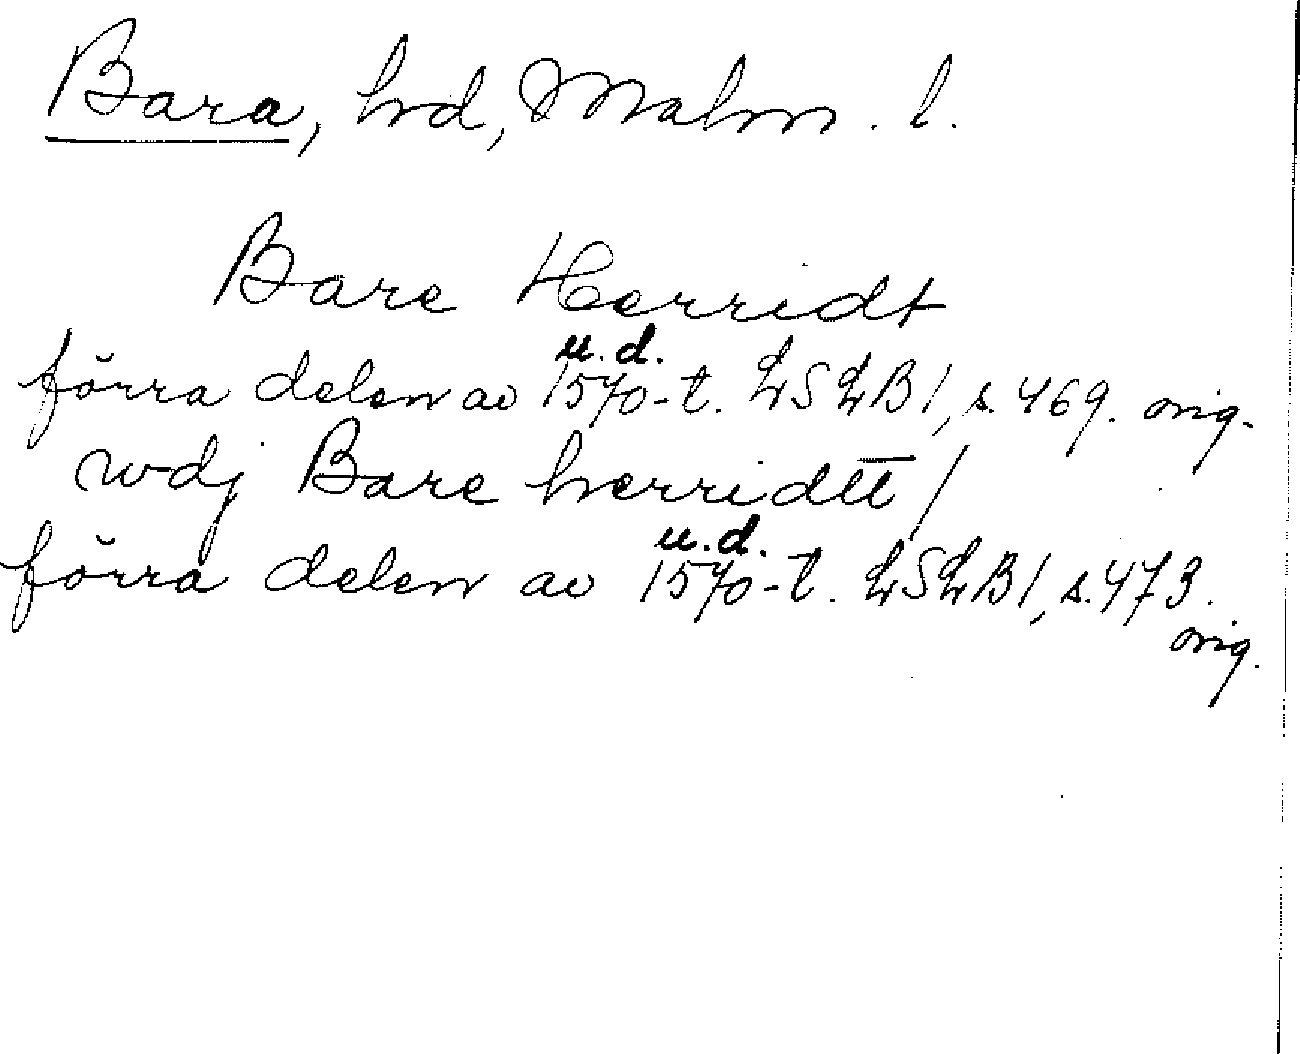 Bara, hd, Malm. l.
Bare Herridt
u. d.
förra delen av 1570-t. LSLB1, s. 469. orig.
wdj Bare herridtt /
u. d.
förra delen av 1570-t. LSLB1, s. 473.
orig.